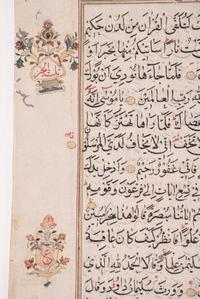 لتلقى القرآن من لدن حكيم
نارا سآتيكم منها بخبر أو
فلما جاءها نودي أن بورك
رب العالمين يا موسى إنه
فلما رآها تهتز كأنها
لا تخف إني لا يخاف لدي المرسلون
فإني غفور رحيم وأدخل يدك
في تسع آيات إلى فرعون وقومه
آياتنا مبصرة قالوا هذا سحر مبين
وعلوا فانظر كيف كان عاقبة
علما وقالا الحمد لله الذي
وورث
ع